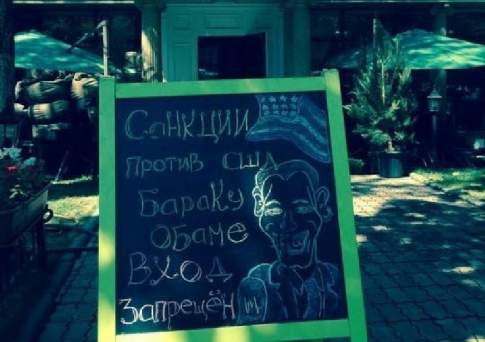 Санкции
против сша
Бараку
Обаме
Вход
запрещён